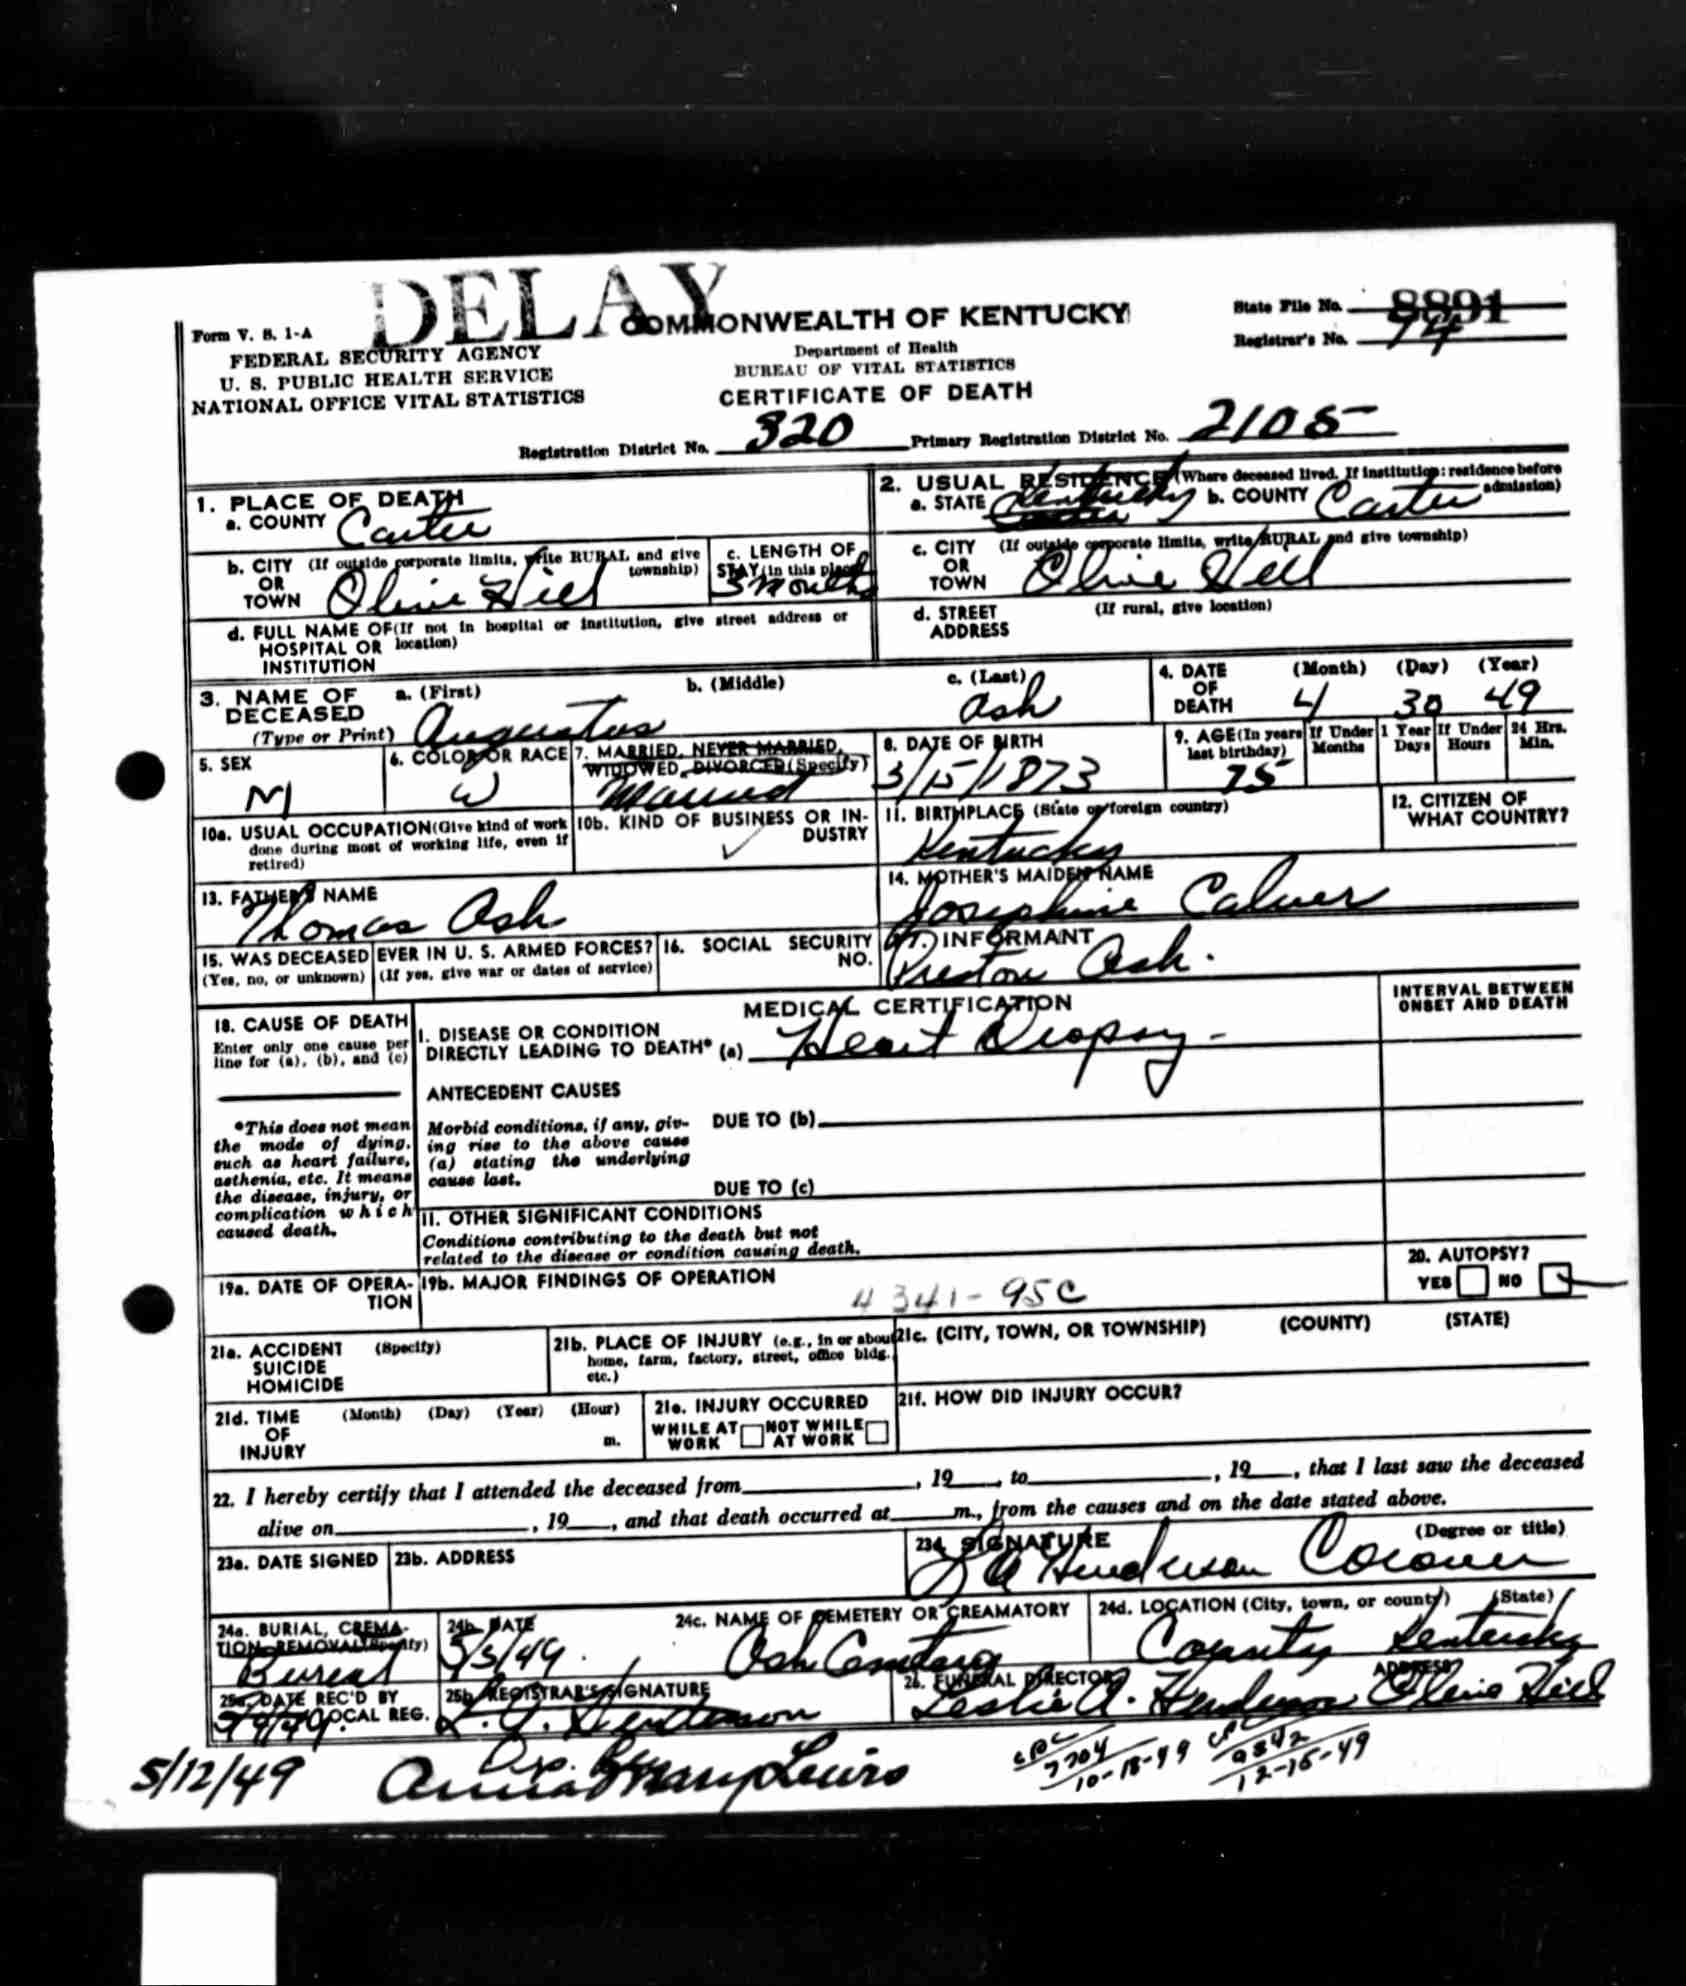 DELAY
Form V. S. 1-A
COMMONWEALTH OF KENTUCKY
State File No. 8891
FEDERAL SECURITY AGENCY
Department of Health
Registrar's No. 74
U. S. PUBLIC HEALTH SERVICE
BUREAU OF VITAL STATISTICS
NATIONAL OFFICE VITAL STATISTICS
CERTIFICATE OF DEATH
Registration District No. 320 Primary Registration District No. 2105
1. PLACE OF DEATH
a. COUNTY Carter
2. USUAL RESIDENCE (Where deceased lived. If institution: residence before admission)
a. STATE Kentucky b. COUNTY Carter
b. CITY (If outside corporate limits, write RURAL and give township)
OR
TOWN Olive Hill
c. LENGTH OF
STAY (in this place)
3 months
c. CITY (If outside corporate limits, write RURAL and give township)
OR
TOWN Olive Hill
d. FULL NAME OF (If not in hospital or institution, give street address or location)
HOSPITAL OR
INSTITUTION
d. STREET (If rural, give location)
ADDRESS
3. NAME OF a. (First) b. (Middle) c. (Last)
DECEASED
(Type or Print) Augustus Ash
4. DATE (Month) (Day) (Year)
OF
DEATH 4 30 49
5. SEX
M
6. COLOR OR RACE
W
7. MARRIED, NEVER MARRIED,
WIDOWED, DIVORCED (Specify)
Married
8. DATE OF BIRTH
3/15/1873
9. AGE (In years last birthday)
75
If Under 1 Year
Months Days
If Under 24 Hrs.
Hours Min.
10a. USUAL OCCUPATION (Give kind of work
done during most of working life, even if
retired)
10b. KIND OF BUSINESS OR IN-
DUSTRY
11. BIRTHPLACE (State or foreign country)
Kentucky
12. CITIZEN OF
WHAT COUNTRY?
13. FATHER'S NAME
Thomas Ash
14. MOTHER'S MAIDEN NAME
Josephine Calver
15. WAS DECEASED EVER IN U. S. ARMED FORCES?
(Yes, no, or unknown) (If yes, give war or dates of service)
16. SOCIAL SECURITY
NO.
17. INFORMANT
Preston Ash.
MEDICAL CERTIFICATION
INTERVAL BETWEEN
ONSET AND DEATH
18. CAUSE OF DEATH
Enter only one cause per
line for (a), (b), and (c)
I. DISEASE OR CONDITION
DIRECTLY LEADING TO DEATH* (a) Heart Dropsy -
ANTECEDENT CAUSES
*This does not mean
the mode of dying,
such as heart failure,
asthenia, etc. It means
the disease, injury, or
complication which
caused death.
Morbid conditions, if any, giv-
ing rise to the above cause
(a) stating the underlying
cause last.
DUE TO (b)
DUE TO (c)
II. OTHER SIGNIFICANT CONDITIONS
Conditions contributing to the death but not
related to the disease or condition causing death.
19a. DATE OF OPERA-
TION
19b. MAJOR FINDINGS OF OPERATION
4341-95C
20. AUTOPSY?
YES NO
21a. ACCIDENT (Specify)
SUICIDE
HOMICIDE
21b. PLACE OF INJURY (e.g., in or about
home, farm, factory, street, office bldg.
etc.)
21c. (CITY, TOWN, OR TOWNSHIP) (COUNTY) (STATE)
21d. TIME (Month) (Day) (Year) (Hour)
OF
INJURY m.
21e. INJURY OCCURRED
WHILE AT WORK NOT WHILE AT WORK
21f. HOW DID INJURY OCCUR?
22. I hereby certify that I attended the deceased from , 19 , to , 19 , that I last saw the deceased
alive on , 19 , and that death occurred at m., from the causes and on the date stated above.
23a. DATE SIGNED
23b. ADDRESS
SIGNATURE (Degree or title)
L A Henderson Coroner
24a. BURIAL, CREMA-
TION, REMOVAL (Specify)
Burial
24b. DATE
5/3/49.
24c. NAME OF CEMETERY OR CREAMATORY
Ash Cemetary
24d. LOCATION (City, town, or county) (State)
County Kentucky
25a. DATE REC'D BY
LOCAL REG.
25b. REGISTRAR'S SIGNATURE
L. A. Henderson
26. FUNERAL DIRECTOR ADDRESS
Leslie A. Henderson Olive Hill
5/12/49
Anna Mary Lewis
CPC
7704
10-18-49
CPC
9842
12-15-49